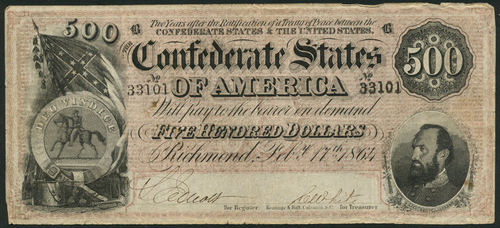 500
Two Years after the Ratification of a Treaty of Peace between the
CONFEDERATE STATES & THE UNITED STATES.
THE
Confederate States
OF AMERICA
No 33101
No 33101
500
Will pay to the bearer on demand
FIVE HUNDRED DOLLARS
Richmond, Feby 17th 1864
DEO VINDICE
for Register
Keatinge & Ball, Columbia, S.C.
for Treasurer